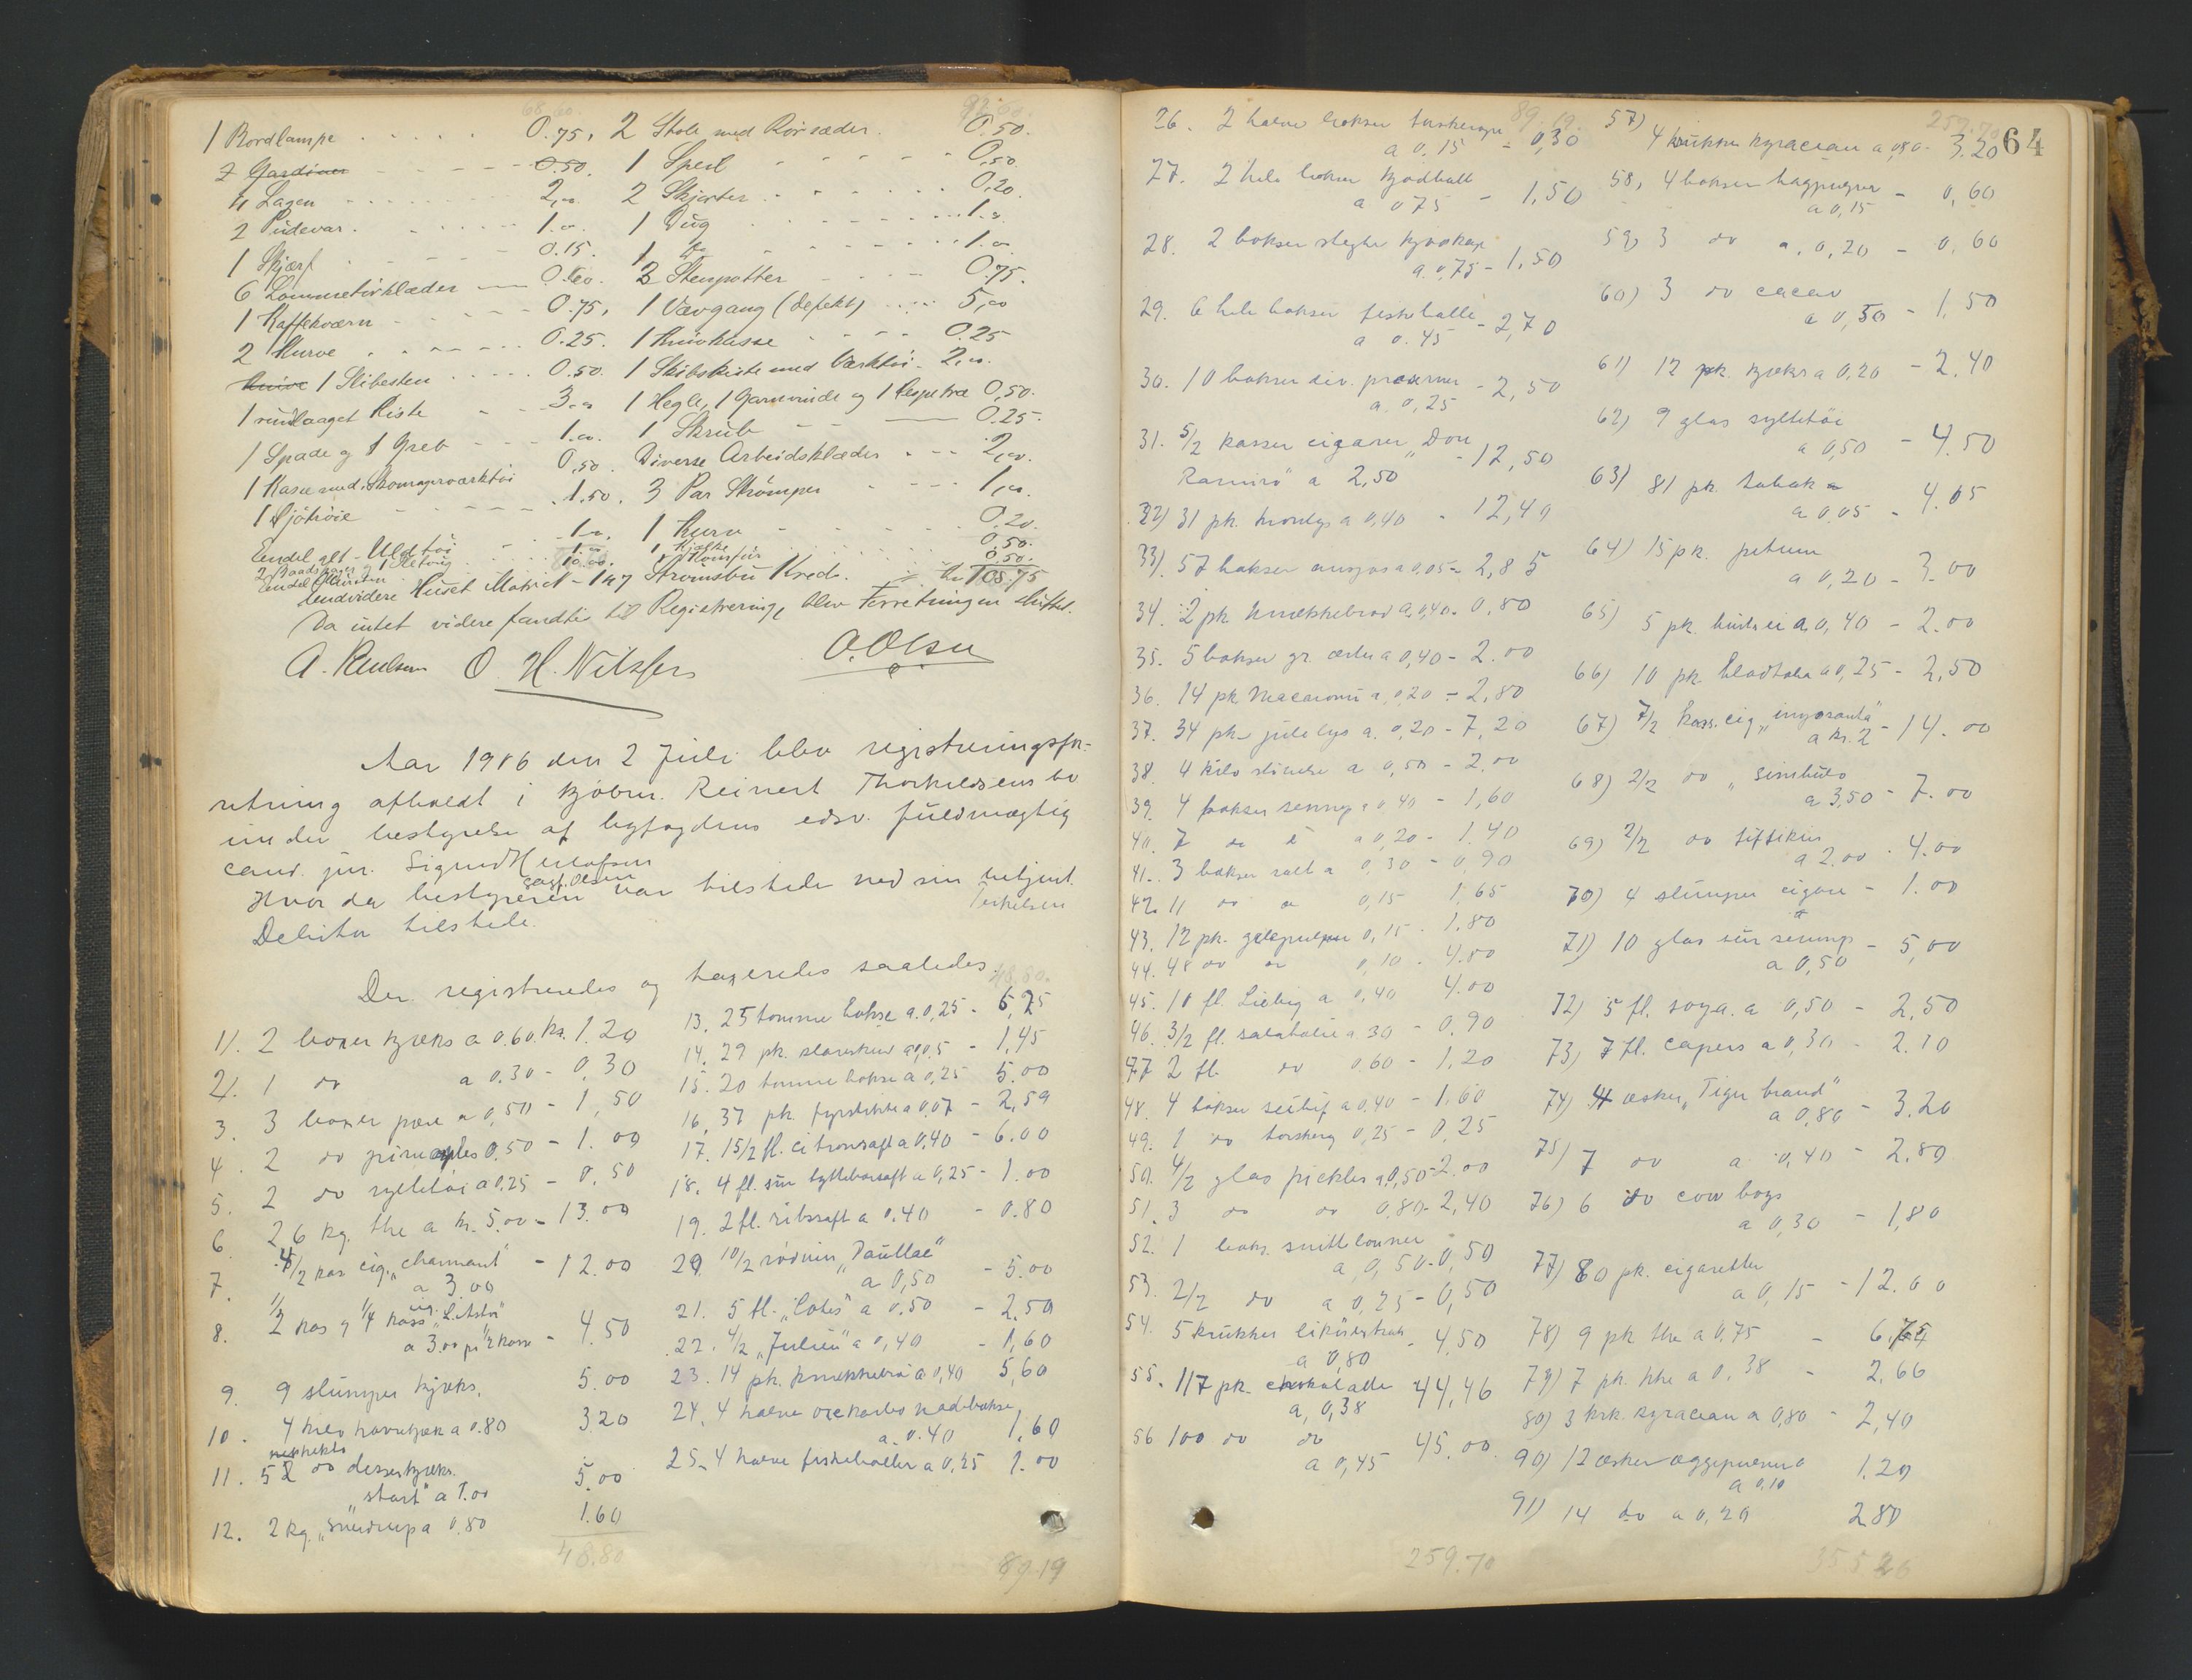 68.60
1 Bordlampe 0.75.
2 Gardiner 0.50.
4 Lagen 2,00
2 Pudevar. 1.00.
1 Skjærf 0.15.
6 Lommetørklæder 0.60.
1 Kaffekværn 0.75.
2 Kurve 0.25.
Knive 1 Slibesten 0.50.
1 rundlaaget Kiste 3.00
1 Spade og 1 Greb 1.00.
1 Kasse med Skomagerværktøi 0,50.
1 Sjøtrøie 1.50.
Endel alt Uldtøi 1.00.
2 Stole med Rørsæder. 0.50.
1 Speil 0.50.
2 Skjorter 0.20.
1 Dug 1.00.
1 do 1.00
3 Stenpotter 0.75.
1 Vævgang (defekt) 5,00
1 Knivkasse 0.25
1 Skibskiste med Værktøi 2.00.
1 Hegle, 1 Garnvinde og 1 Hespetræ 0,50.
1 Skrub 0.25.
Diverse Arbeidsklæder 2,00.
3 Par Strømper 1,00.
1 Kurv 0,20.
1 Kjælke 0,50.
0,50.
Endvidere Huset Matrikel 147 Strømsbu Kreds. Kr 108.75
Da intet videre fandtes til Registrering, blev Forretningen sluttet.
A. Paulsen O. H. Nilsen O. Olsen
Aar 1906 den 2 Juli blev registreringsfor-
retning afholdt i kjøbm. Reinert Thorkildsens bo
under bestyrelse af byfogdens edsv. fuldmægtig
cand. jur. Sigurd Herlofsen
Hvor da bestyreren var tilstede med sin betjent.
Debitor Terkelsen tilstede.
Der registreredes og taxeredes saaledes
1). 2 boxer kjæks a 0.60. kr. 1.20
2). 1 do a 0.30 - 0,30
3. 3 boxer pære a 0,50 - 1,50
4. 2 do pineaples 0.50 - 1.00
5. 2 do syltetøi a 0.25 - 0.50
6. 2,6 kg. the a kr. 5.00 - 13.00
7. 4/2 kas cig. "charmant" a 3.00 - 12.00
8. 1/2 kas og 1/4 kass cig. a 3.00 pr 1/2 kasse - 4.50
9. 9 slumper kjæks. 5.00
10. 4 kilo havrekjæk a 0.80 3.20
11. 5 do dessertkjæks. "start" a 1.00 5.00
12. 2 kg. a 0.80 1.60
48.80
48.80.
13. 25 tomme bokse a 0,25 - 6,25
14. 29 pk. a 0,05 - 1,45
15. 20 tomme bokse a 0,25 5.00
16. 37 pk. fyrstikker a 0,07 - 2,59
17. 15/2 fl. citronsaft a 0,40 - 6.00
18. 4 fl. sur tyttebærsaft a 0,25 - 1.00
19. 2 fl. ribssaft a 0.40 - 0.80
20. 10/2 rødvin "Paullac" a 0,50 - 5.00
21. 5 fl. "Cotes" a 0.50 - 2.50
22. 4/2 "Julien" a 0,40 - 1,60
23. 14 pk. knækkebrø a 0,40 5,60
24. 4 halve a 0.40 1,60
25. 4 halve fiskeboller a 0,25 1.00
89.19
64
89.19.
26. 2 halve bokser
a 0,15 - 0,30
27. 2 hele bokser kjødboll
a 0,75 - 1,50
28. 2 bokser stegte kjødkag
a 0,75 - 1,50
29. 6 hele bokser fiskeballe
a 0.45 - 2,70
30. 10 bokser div. præserver
a 0,25 - 2,50
31. 5/2 kasser cigarer "Don
Ramiro" a 2,50 - 12,50
32) 31 pk. kronlys a 0,40 - 12,40
33). 57 bokser ansjos a 0,05 - 2,85
34. 2 pk. knækkebrød a 0,40 - 0,80
35. 5 bokser gr. erter a 0,40 - 2.00
36. 14 pk. Macaroni a 0,20 - 2,80
37. 34 pk julelys a. 0,20 - 7,20
38. 4 kilo stivelse a 0,50 - 2.00
39. 4 bokser sennep a 0.40 - 1,60
40. 7 do a 0,20 - 1.40
41. 3 bokser salt a 0,30 - 0,90
42. 11 do a 0,15 1,65
43. 12 pk. gelepulver 0,15 1.80
44. 48 do 0,10 - 4.80
45. 10 fl. Liebig a 0,40 4.00
46. 3/2 fl. salatolie a 30 - 0,90
47 2 fl. do 0.60 - 1,20
48. 4 bokser a 0.40 - 1.60
49. 1 do 0,25 - 0,25
50. 4/2 glas pickles a 0,50 - 2.00
51. 3 do do 0,80 - 2,40
52. 1 boks. snittbønner
a 0,50 - 0,50
53. 2/2 do a 0,25 - 0,50
54. 5 krukker
a 0,80 - 4,50
55. 117 pk. chokolade
a. 0,38 44,46
56 100 do do
a 0,45 45.00
259.70
259.70
57) 4 krukker a 0,80. 3.20
58, 4 bokser bagpulver
a 0,15 - 0,60
59) 3 do a. 0,20 - 0,60
60) 3 do cacao
a 0,50 - 1,50
61) 12 pk. kjeks a 0,20 - 2.40
62) 9 glas syltetøi
a 0,50 - 4.50
63) 81 pk. tobak
a 0.05 - 4.05
64) 15 pk. petum
a 0,20 - 3.00
65) 5 pk. a 0,40 - 2.00
66) 10 pk. bladtobak a 0,25 - 2,50
67) 7/2 kass. cig.
a kr. 2 - 14.00
68) 2/2 do "
a 3,50 - 7.00
69) 2/2 do
a 2.00 - 4.00
70) 4 slumper cigarer - 1.00
71) 10 glas sur sennep
a 0,50 - 5,00
72) 5 fl. soya. a 0,50 - 2,50
73) 7 fl. capers a 0,30 - 2.10
74) 4 æsker "Tiger brand"
a 0,80 - 3.20
75) 7 do a 0,40 - 2.80
76) 6 do cow boys
a 0,30 - 1,80
77) 80 pk. cigaretter
a 0,15 - 12.00
78) 9 pk the a 0,75 - 6,75
79) 7 pk. the a 0,38 - 2.66
80) 3 krk. a 0,80 - 2,40
90) 12 æsker eggepulver
a 0,10 1.20
91) 14 do a 0,20 2.80
355 26